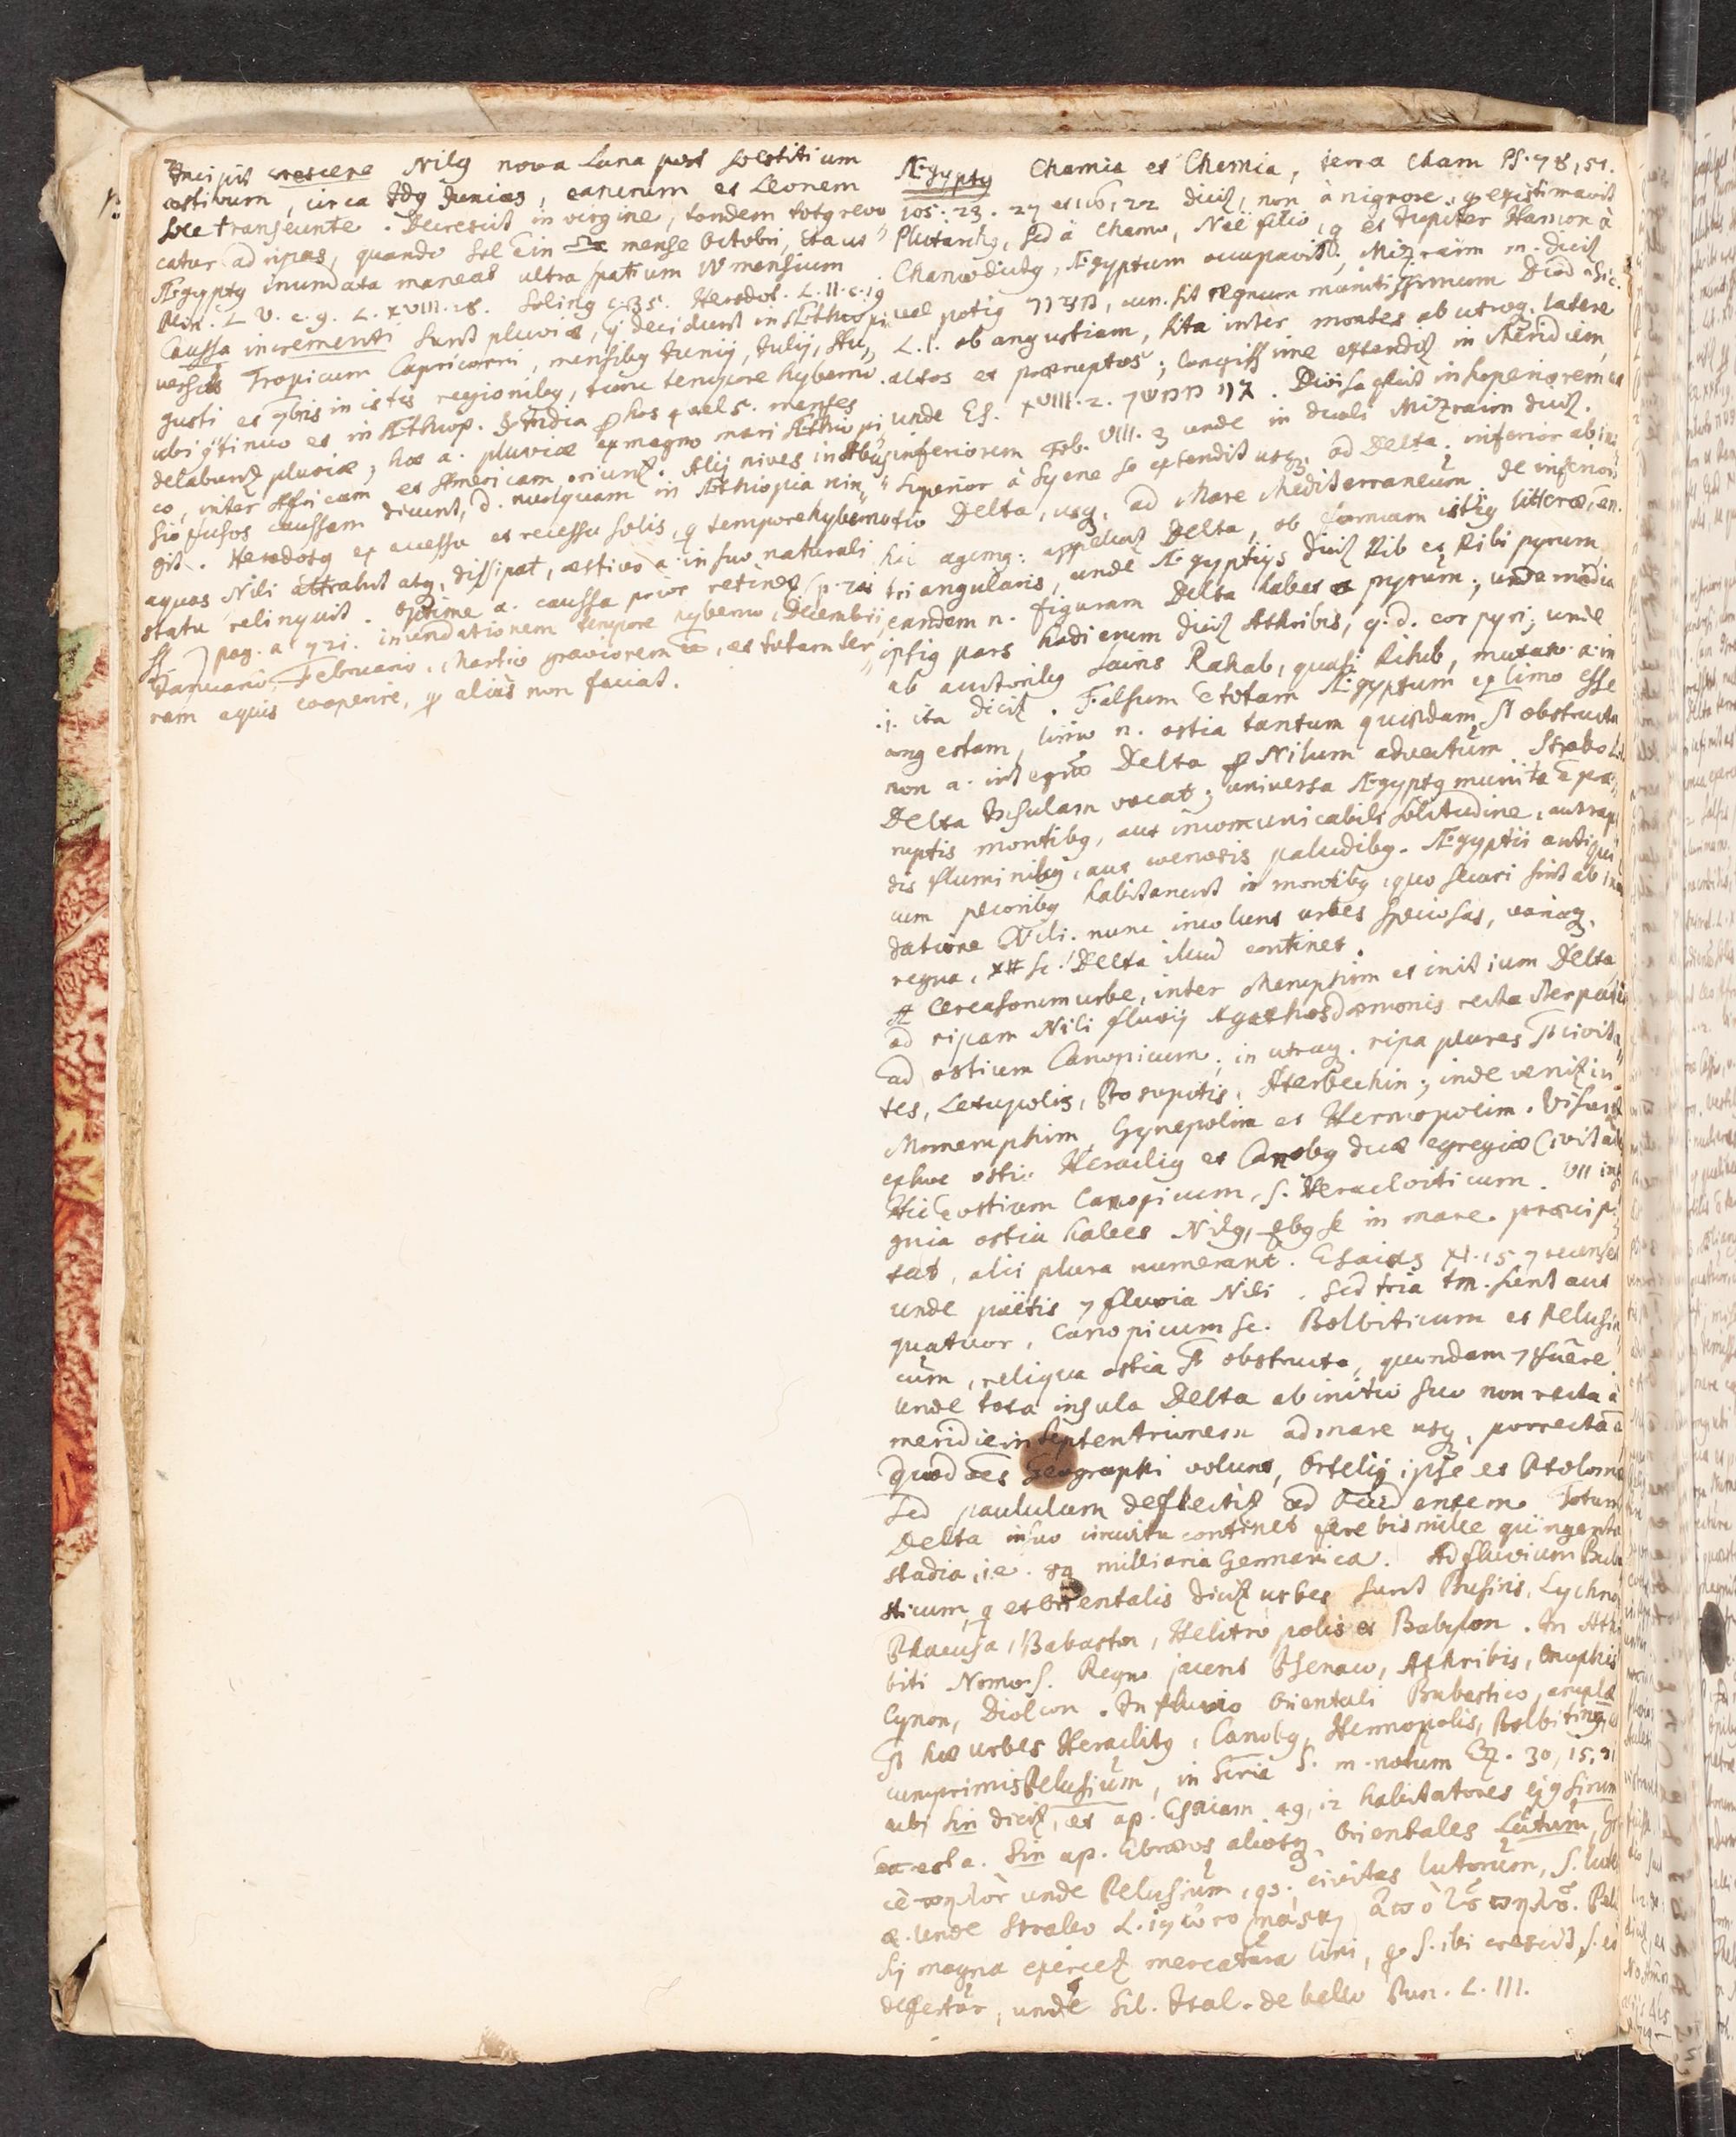 Incipit crescere Nilg nova Luna post solstitium
æstivum, circa Idg Junias, cancrum et Leonem
sole transeunte. Decrescit in virgine, tandem totg revo
catur ad ripas, quando Sol ē in ♎ mense Octobri, ita ut
Ægyptg inundata maneat ultra spatium IV mensium
Plin. L. V. c. 9. L. XVIII. 18. Soling c. 35. Herodot. L. II. c. 19
Caussa incrementi sunt pluviæ, q decidunt in Æthiopia
versus Tropicum Capricorni, mensibg Junij, Julij, Au„
gusti et 7bris in istis regionibg, tunc tempore hyberno.
ubi 9tinuo et in Æthiop. & India p hos 4 vel 5. menses
delabuntur pluviæ; hæ a. pluviæ ex magno mari Æthiopi
co, inter Africam et Americam oriuntur. Alij nives in Abys
sio fusos caussam dicunt, d. nusquam in Æthiopia nin„
git. Herodotg ex accessu et recessu solis, q tempore hyberno
aquas Nili attrahit atq, dissipat, æstivo a. in suo naturali
statu relinquit. Optime a. caussa prior retinetur p. 721
ſſ pag. a 721. inundationem tempore hyberno, Decembri,
Januario, Februario, Martio graviorem ēē, et totam ter„
ram aquis cooperire, q aliàs non faciat.
Ægyptg Chamia et Chemia, terra Cham Ps. 78, 51.
105. 23. 27 et 106, 22 dicitur, non à nigrore, q existimavit
Plutarchg, sed à Chamo, Noë filio, q et Jupiter Hamon à
Chano dictg, Ægyptum occupavit, Mizraim n. dicitur
vel potig מצור, cum sit regnum munitissimum Diod. Sic.
L. I. ob angustiam, sita inter montes ab utroq. latere
altos et præruptos; longissime extenditur in Meridiem,
unde Es. XVIII. 2. . Divisa fuit in superiorem et
inferiorem Tob. VIII. 3 unde in duali Mizraim dicitur.
Superior à Syene se extendit usq. ad Delta. inferior ab ini„
tio Delta, usq, ad Mare Mediterraneum. de inferiori
hic agimg: appellatur Delta, ob formam istig litteræ, ēn.
triangularis, unde Ægyptijs dicitur Rib et Ribi pyrum,
eandem n. figuram Delta habet et pyrum; unde media
ipsig pars hodienum dicitur Athribis, q. d. cor pyri; unde
ab auctoribg sacris Rahab, quasi Rihib, mutato a. in
.i. ita dicitur. Falsum ē totam Ægyptum ex limo esse
congestam, limo n. ostia tantum quædam st obstructa
non a. integrū Delta p Nilum advectum. Strabo L.
Delta Insulam vocat; universa Ægyptg munita ē præ„
ruptis montibg, aut incommunicabili solitudine, aut rapi
dis fluminibg, aut cœnosis paludibg. Ægyptii antiqui
cum pecoribg habitarunt in montibg, quo securi sint ab inun
datione Nili. nunc incolunt urbes speciosas, variaq.
regna, sc. Delta illud continet.
A Cercasorum urbe, inter Memphim et initium Delta
ad ripam Nili fluvij Agathosdæmonis recta iter patet
ad ostium Canopicum; in utraq. ripa plures st civita„
tes, Letupolis, Prosopitis, Aterbechin; inde venitur in
Momemphim, Gynepolim et Hermopolim. Visuntur
ex hoc osti: Heraclig et Canobg duæ egregiæ Civitates
Hic ē ostium Canopicum, s. Heracleoticum. VII insi
gnia ostia habet Nilg, qbg se in mare. præcipi
tat, alii plura numerant. Esaias XI. 15 7 recenset
unde poëtis 7 fluvia Nili. sed tria tm. sunt aut
quatuor, Canopicum sc. Bolbiticum et Pelusia
cum, reliqua ostia st obstructa, quondam 7 fuēre
unde tota insula Delta ab initio suo non recta à
meridie in septentrionem ad mare usq, porrecta ē
quod oēs Geographi volunt, Ortelig ipse et Ptolomæ
sed paululum deflectitur ad Occidentem. Totum
Delta in suo circuitu continet fere bis mille quingenta
stadia, i.e. 89 milliaria Germanica. Ad fluvium Buba
sticum, q et Orientalis dicitur urbes sunt Busiris, Lychno
Phacusa, Babastos, Helitropolis et Babylon. In Atri
biti Nomo s. Regno jacent Psenaco, Athribis, Onuphis
Cynon, Diolcon. In fluvio Orientali Bubastico
st hæ urbes Heraclitg, Canobg, Hermopolis, Bolbiting,
cumprimis Pelusium, in Scrie S. m. notum Ez. 30, 15, 91
ubi Sin dicitur, et ap. Esaiam 49, 12 habitatores ejg Sinim
est a. Sin ap. Ebræos alioqg Orientales Lutum, Græ
cè πηλὸν unde Pelusium, qs. civitas lutorum, s. lute
a. unde Strabo L. 17 ἀπὸ τοῦ πηλοῦ. Pelu
sij magna exercetur mercatura lini, qo s. ibi crescit, s. eò
defertur, unde Sil. Ital. de bello Pun. L. III.